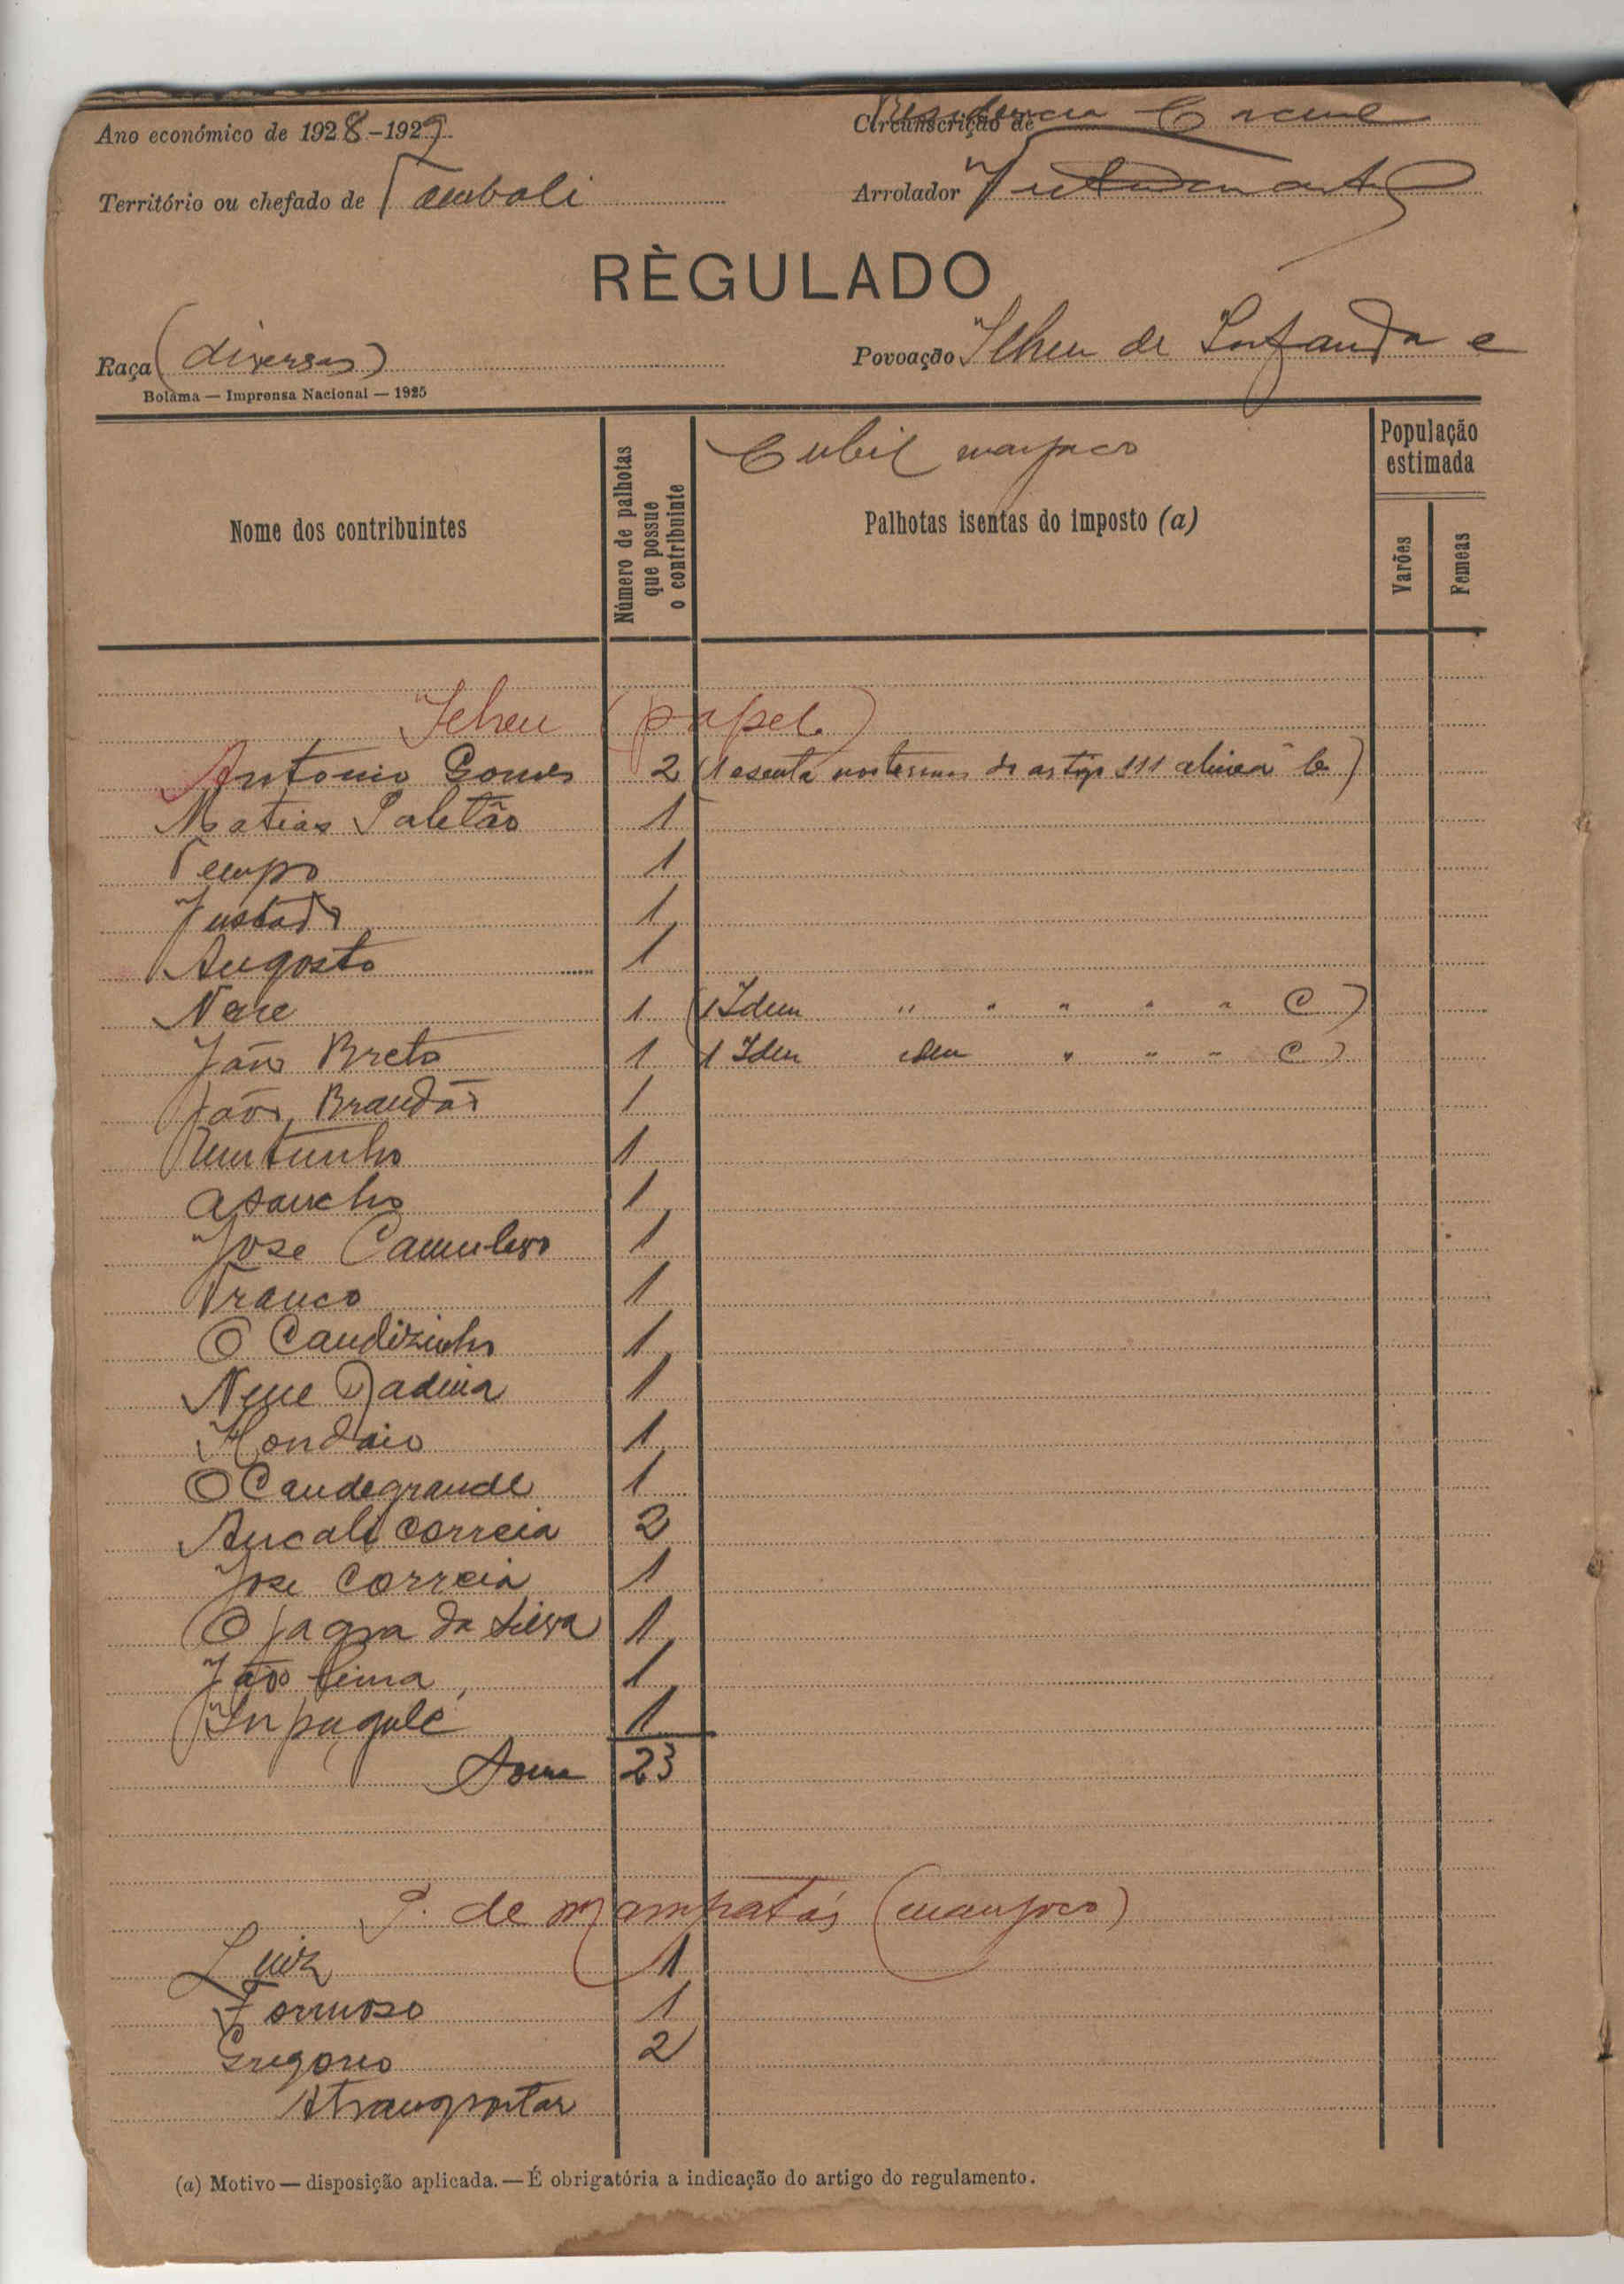 Ano económico de 1928-1929
Circunscrição de Residencia Cacine
Território ou chefado de Tombali
Arrolador
RÈGULADO
Raça (diversas)
Povoação Ilheu de e
Bolama — Imprensa Nacional — 1925
Cubil manjaco
Nome dos contribuintes
Número de palhotas que possue o contribuinte
Palhotas isentas do imposto (a)
População estimada
Varões
Femeas
Ilheu (papel)
Antonio Gomes 2 (1 esenta nos termos do artigo 111 alinea b)
Matias Paletão 1
Tempo 1
1
Augosto 1
Nene 1 (1 Idem " " " " " C)
João Breto 1 1 Idem idem " " " C)
João Brandão 1
1
1
Jose 1
Franco 1
O Candizinho 1
Nene 1
1
O Candegrande 1
Correia 2
Jose Correia 1
O Jagra da Silva 1
João Lima 1
1
Soma 23
P. de Mampatás (manjoco)
Luiz 1
Formoso 1
Gregorio 2
A transportar
(a) Motivo — disposição aplicada. — É obrigatória a indicação do artigo do regulamento.